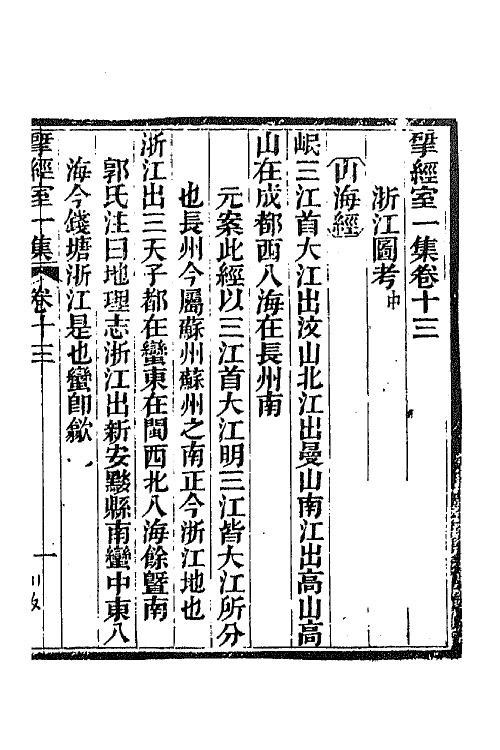 揅經室一集卷十三
浙江圖考中
山海經
岷三江首大江出汶山北江出曼山南江出高山高
山在成都西入海在長州南
元案此經以三江首大江明三江皆大江所分
也長州今屬蘇州蘇州之南正今浙江地也
浙江出三天子都在蠻東在閩西北入海餘暨南
郭氏注曰地理志浙江出新安黟縣南蠻中東入
海今錢塘浙江是也蠻卽歙
揅經室一集 卷十三 一